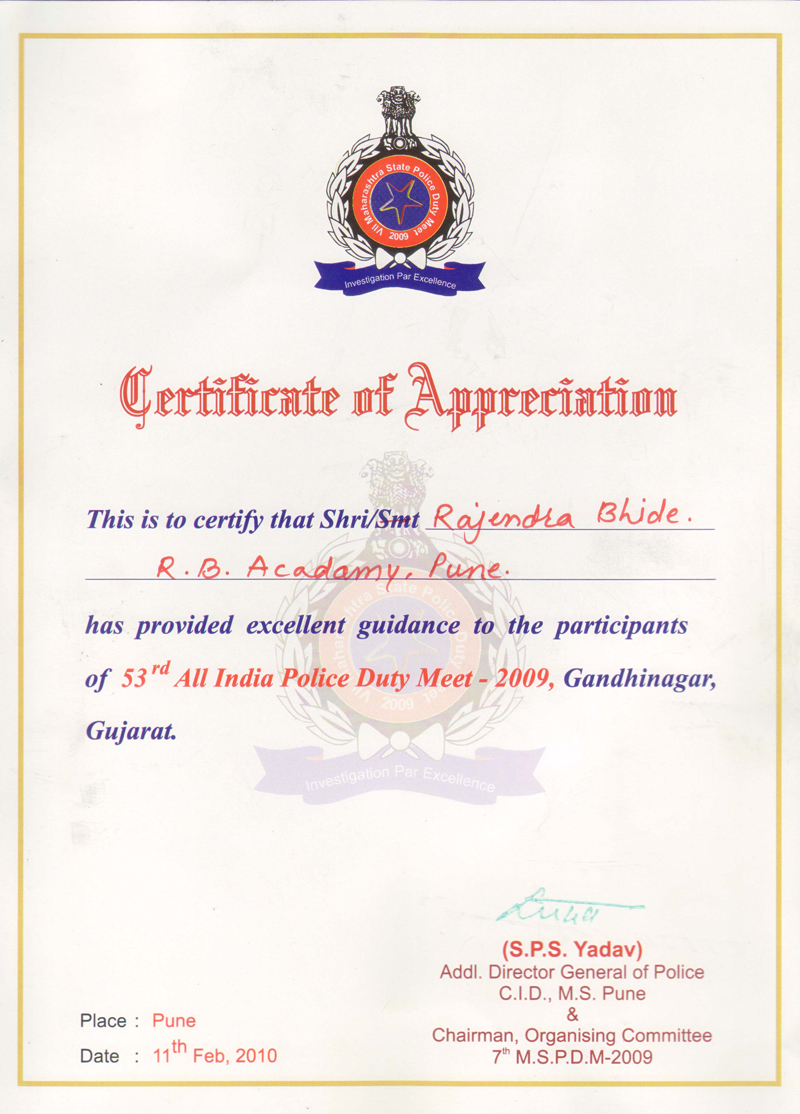 VII Maharashtra State Police Duty Meet
2009
Investigation Par Excellence
Certificate of Appreciation
This is to certify that Shri/Smt Rajendra Bhide.
R.B. Acadamy, Pune.
has provided excellent guidance to the participants
of 53rd All India Police Duty Meet - 2009, Gandhinagar,
Gujarat.
VII Maharashtra State Police Duty Meet
2009
Investigation Par Excellence
(S.P.S. Yadav)
Addl. Director General of Police
C.I.D., M.S. Pune
&
Chairman, Organising Committee
7th M.S.P.D.M-2009
Place : Pune
Date : 11th Feb, 2010